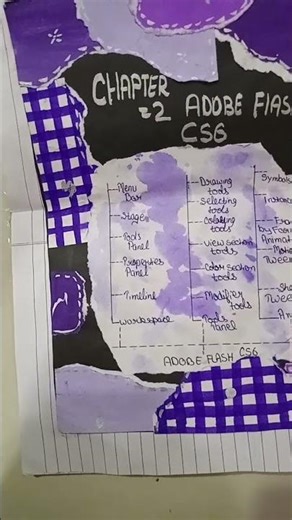 CHAPTER
=2 ADOBE FLASH
CS6
Menu
Bar
Stage
Tools
Panel
Properties
Panel
Timeline
Workspace
Drawing
tools
Selecting
tools
Coloring
tools
View Section
tools
Color Section
tools
Modifier
tools
Tools
Panel
Symbols
Instance
by Frame
Tween
Tween
ADOBE FLASH CS6